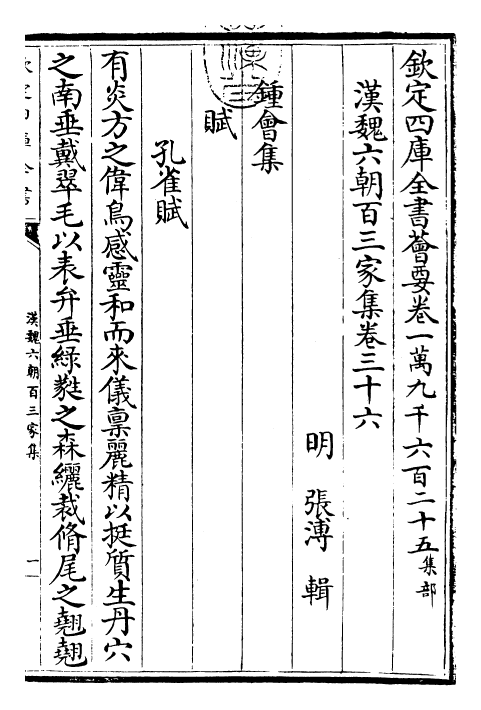 欽定四庫全書薈要卷一萬九千六百二十五集部
漢魏六朝百三家集卷三十六
明 張溥 輯
鍾會集
賦
孔雀賦
有炎方之偉鳥感靈和而來儀稟麗精以挺質生丹穴
之南垂戴翠毛以表弁垂綠蕤之森纚裁脩尾之翹翹
漢魏六朝百三家集
一